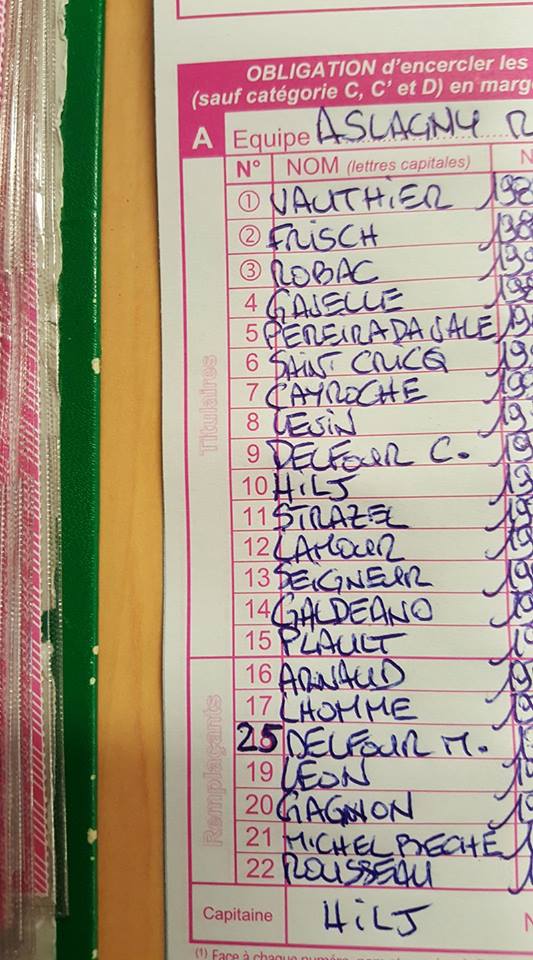 OBLIGATION d'encercler les
(sauf catégorie C, C' et D) en marg
A Equipe ASLAGNY R
N° NOM (lettres capitales) N
Titulaires
① VAUTHIER 198
② FRISCH 198
③ ROBAC 19
4 GAJELLE 198
5 PEREIRADAVALE 19
6 SAINT CRICQ 199
7 CAYROCHE 199
8 LESIN 19
9 DELFOUR C. 19
10 HILJ 19
11 STRAZEL 19
12 LAMOUR 19
13 SEIGNEUR 19
14 GALDEANO 19
15 PLAULT 1
Remplaçants
16 ARNAUD 19
17 LHOMME 19
25 DELFOUR M. 1
19 LEON 1
20 GAGNON 19
21 MICHEL BECHE 1
22 ROUSSEAU 1
Capitaine HILJ N
(1) Face à chaque numéro